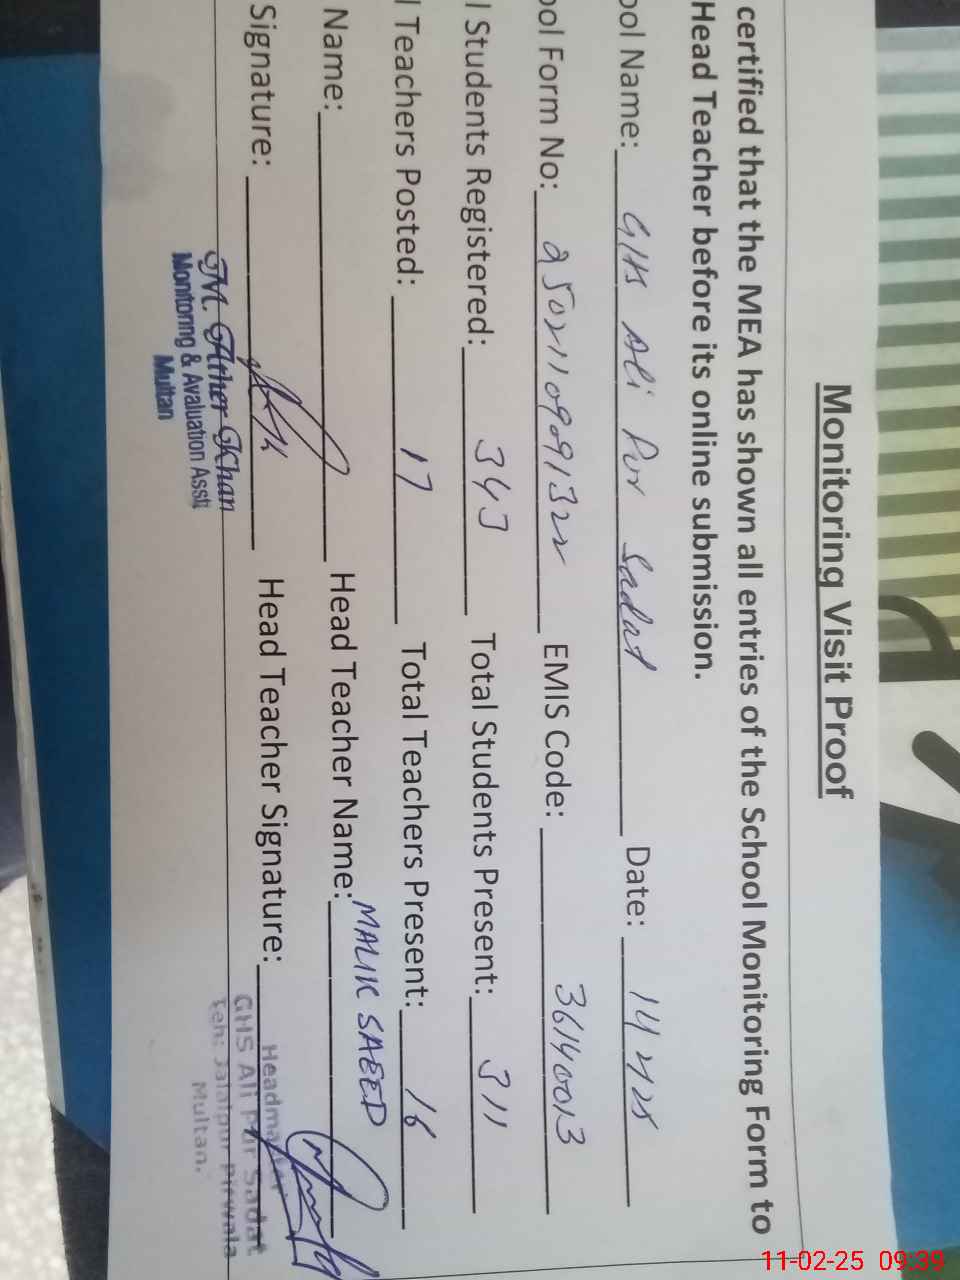 Monitoring Visit Proof
certified that the MEA has shown all entries of the School Monitoring Form to
Head Teacher before its online submission.
ool Name: GHS Ali Pur Sadat Date: 11 2 25
ool Form No: 25021109091322 EMIS Code: 36140013
l Students Registered: 343 Total Students Present: 311
l Teachers Posted: 17 Total Teachers Present: 16
Name: Head Teacher Name: MALIK SAEED
Signature: Head Teacher Signature:
M. Ather Khan
Monitoring & Avaluation Asstt
Multan
Headmaster
GHS Ali Pur Sadat
Teh: Jalalpur Pirwala
Multan.
11-02-25 09:39